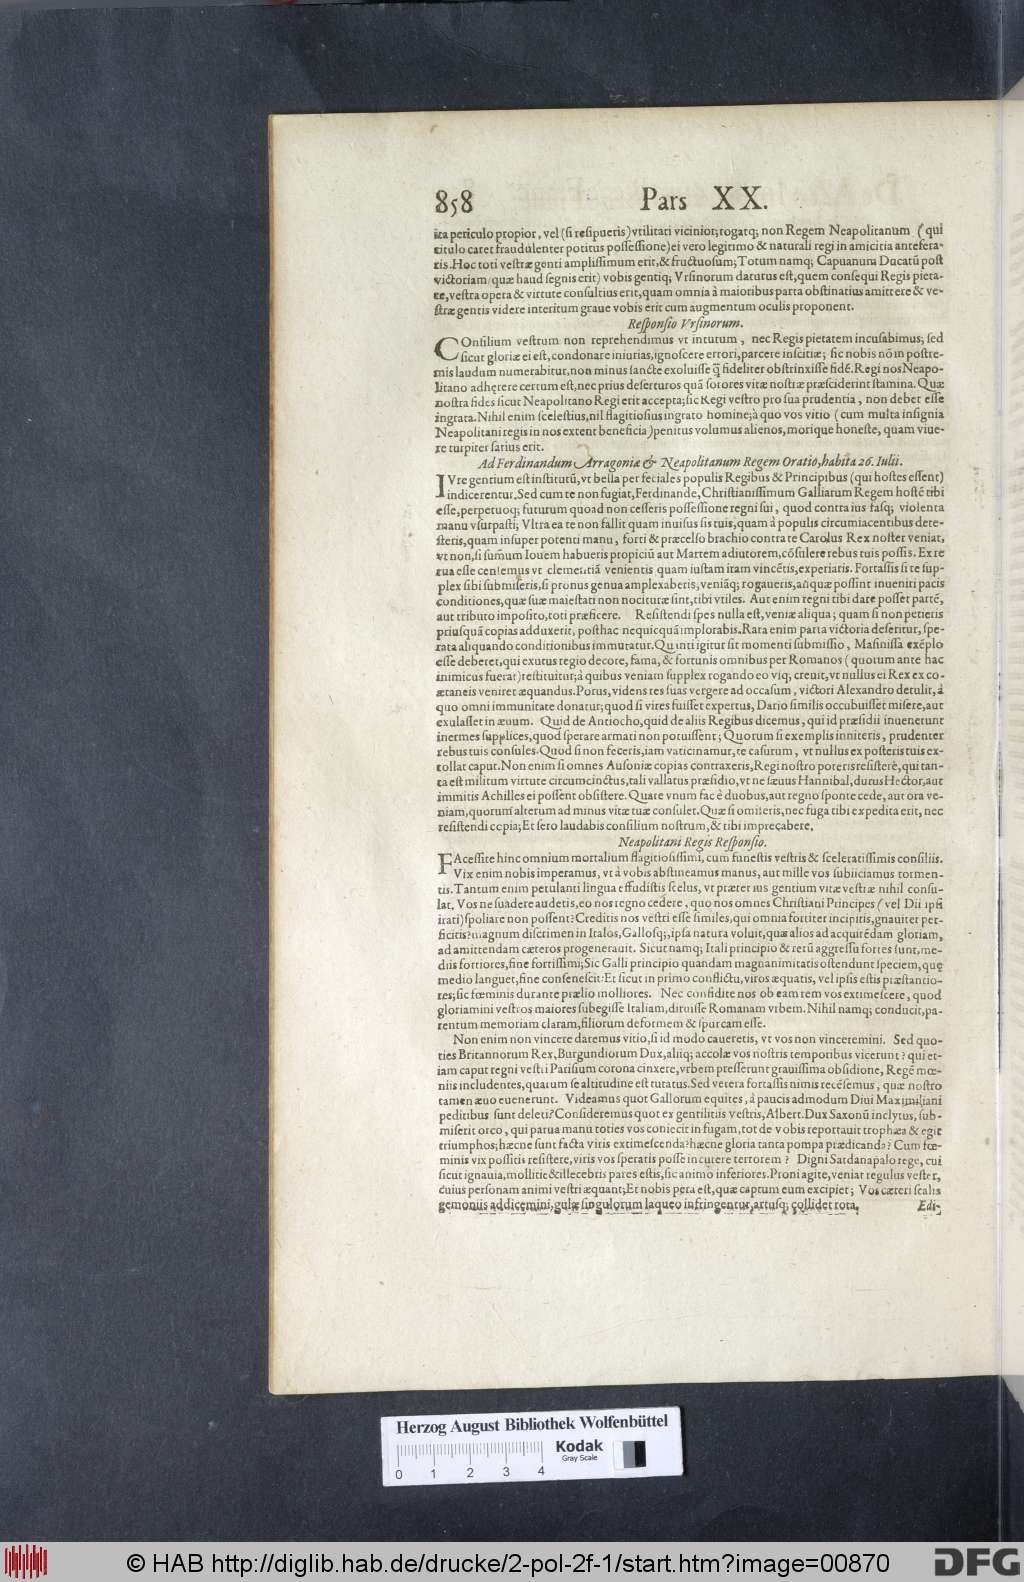 858 Pars XX.
ita periculo propior, vel (si resipueris) vtilitati vicinior; rogatq; non Regem Neapolitanum (qui
titulo caret fraudulenter potitus possessione) ei vero legitimo & naturali regi in amicitia antefera-
tis. Hoc toti vestræ genti amplissimum erit, & fructuosum; Totum namq; Capuanum Ducatũ post
victoriam (quæ haud segnis erit) vobis gentiq; Vrsinorum daturus est, quem consequi Regis pieta-
te, vestra opera & virtute consultius erit, quam omnia à maioribus parta obstinatius amittere & ve-
stræ gentis videre interitum graue vobis erit cum augmentum oculis proponent.
Responsio Vrsinorum.
COnsilium vestrum non reprehendimus vt intutum, nec Regis pietatem incusabimus; sed
sicut gloriæ ei est, condonare iniurias, ignoscere errori, parcere inscitiæ; sic nobis nõ in postre-
mis laudum numerabitur, non minus sancte exoluisse q̃ fideliter obstrinxisse fidẽ. Regi nos Neapo-
litano adhęrere certum est, nec prius deserturos quã sorores vitæ nostræ præsciderint stamina. Quæ
nostra fides sicut Neapolitano Regi erit accepta; sic Regi vestro pro sua prudentia, non debet esse
ingrata. Nihil enim scelestius, nil flagitiosius ingrato homine; à quo vos vitio (cum multa insignia
Neapolitani regis in nos extent beneficia) penitus volumus alienos, morique honeste, quam viue-
re turpiter satius erit.
Ad Ferdinandum Arragoniæ & Neapolitanum Regem Oratio, habita 26. Iulii.
IVre gentium est institutũ, vt bella per feciales populis Regibus & Principibus (qui hostes essent)
indicerentur. Sed cum te non fugiat, Ferdinande, Christianissimum Galliarum Regem hostẽ tibi
esse, perpetuoq; futurum quoad non cesseris possessione regni sui, quod contra ius fasq; violenta
manu vsurpasti; Vltra ea te non fallit quam inuisus sis tuis, quam à populis circumiacentibus dete-
steris, quam insuper potenti manu, forti & præcelso brachio contra te Carolus Rex noster veniat,
vt non, si summum Iouem habueris propiciũ aut Martem adiutorem, cõsulere rebus tuis possis. Ex re
tua esse censemus vt clementiã venientis quam iustam iram vincẽtis, experiatis. Fortassis si te sup-
plex sibi submiseris, si pronus genua amplexaberis, veniãq; rogaueris, aliquæ possint inueniri pacis
conditiones, quæ suæ maiestati non nocituræ sint, tibi vtiles. Aut enim regni tibi dare posset partẽ,
aut tributo imposito, toti præficere. Resistendi spes nulla est, veniæ aliqua; quam si non petieris
priusquã copias adduxerit, posthac nequicquã implorabis. Rara enim parta victoria deseritur, spe-
rata aliquando conditionibus immutatur. Quanti igitur sit momenti submissio, Masinissa exẽplo
esse deberet, qui exutus regio decore, fama, & fortunis omnibus per Romanos (quorum ante hac
inimicus fuerat) restituitur; à quibus veniam supplex rogando eo vsq; creuit, vt nullus ei Rex ex co-
ætaneis veniret æquandus. Porus, videns res suas vergere ad occasum, victori Alexandro detulit, à
quo omni immunitate donatur; quod si vires fuisset expertus, Dario similis occubuisset misere, aut
exulasset in æuum. Quid de Antiocho, quid de aliis Regibus dicemus, qui id præsidii inuenerunt
inermes supplices, quod sperare armati non potuissent; Quorum si exemplis inniteris, prudenter
rebus tuis consules. Quod si non feceris, iam vaticinamur, te casurum, vt nullus ex posteris tuis ex-
tollat caput. Non enim si omnes Ausoniæ copias contraxeris, Regi nostro poteris resistere, qui tan-
ta est militum virtute circumcinctus, tali vallatus præsidio, vt ne sæuus Hannibal, durus Hector, aut
immitis Achilles ei possent obsistere. Quare vnum fac è duobus, aut regno sponte cede, aut ora ve-
niam, quorum alterum ad minus vitæ tuæ consulet. Quæ si omiseris, nec fuga tibi expedita erit, nec
resistendi copia; Et sero laudabis consilium nostrum, & tibi imprecabere.
Neapolitani Regis Responsio.
FAcessite hinc omnium mortalium flagitiosissimi, cum funestis vestris & sceleratissimis consiliis.
Vix enim nobis imperamus, vt à vobis abstineamus manus, aut mille vos subiiciamus tormen-
tis. Tantum enim petulanti lingua effudistis scelus, vt præter ius gentium vitæ vestræ nihil consu-
lat. Vos ne suadere audetis, eo nos regno cedere, quo nos omnes Christiani Principes (vel Dii ipsi
irati) spoliare non possent? Creditis nos vestri esse similes, qui omnia fortiter incipitis, gnauiter per-
ficitis? magnum discrimen in Italos, Gallosq;, ipsa natura voluit, quæ alios ad acquirẽdam gloriam,
ad amittendam cæteros progenerauit. Sicut namq; Itali principio & rerũ aggressu fortes sunt, me-
diis fortiores, fine fortissimi; Sic Galli principio quandam magnanimitatis ostendunt speciem, quę
medio languet, fine consenescit: Et sicut in primo conflictu, viros æquatis, vel ipsis estis præstantio-
res; sic fœminis durante prælio molliores. Nec confidite nos ob eam rem vos extimescere, quod
gloriamini vestros maiores subegisse Italiam, diruisse Romanam vrbem. Nihil namq; conducit, pa-
rentum memoriam claram, filiorum deformem & spurcam esse.
Non enim non vincere daremus vitio, si id modo caueretis, vt vos non vinceremini. Sed quo-
ties Britannorum Rex, Burgundiorum Dux, aliiq; accolæ vos nostris temporibus vicerunt? qui et-
iam caput regni vestri Parisium corona cinxere, vrbem presserunt grauissima obsidione, Regẽ mœ-
niis includentes, quarum se altitudine est tutatus. Sed vetera fortassis nimis recẽsemus, quæ nostro
tamen æuo euenerunt. Videamus quot Gallorum equites, à paucis admodum Diui Maximiliani
peditibus sunt deleti? Consideremus quot ex gentilitiis vestris, Albert. Dux Saxonũ inclytus, sub-
miserit orco, qui parua manu toties vos coniecit in fugam, tot de vobis reportauit trophæa & egit
triumphos; hæcne sunt facta viris extimescenda? hæcne gloria tanta pompa prædicanda? Cum fœ-
minis vix possitis resistere, viris vos speratis posse incutere terrorem? Digni Sardanapalo rege, cui
sicut ignauia, mollitie & illecebris pares estis, sic animo inferiores. Proni agite, veniat regulus vester,
cuius personam animi vestri æquant; Et nobis pera est, quæ captum eum excipiet; Vos cæteri scalis
gemoniis addicemini, gulæ singulorum laqueo infringentur, artusq; collidet rota.
Edi-
Herzog August Bibliothek Wolfenbüttel
Kodak
Gray Scale
0 1 2 3 4
© HAB http://diglib.hab.de/drucke/2-pol-2f-1/start.htm?image=00870
DFG